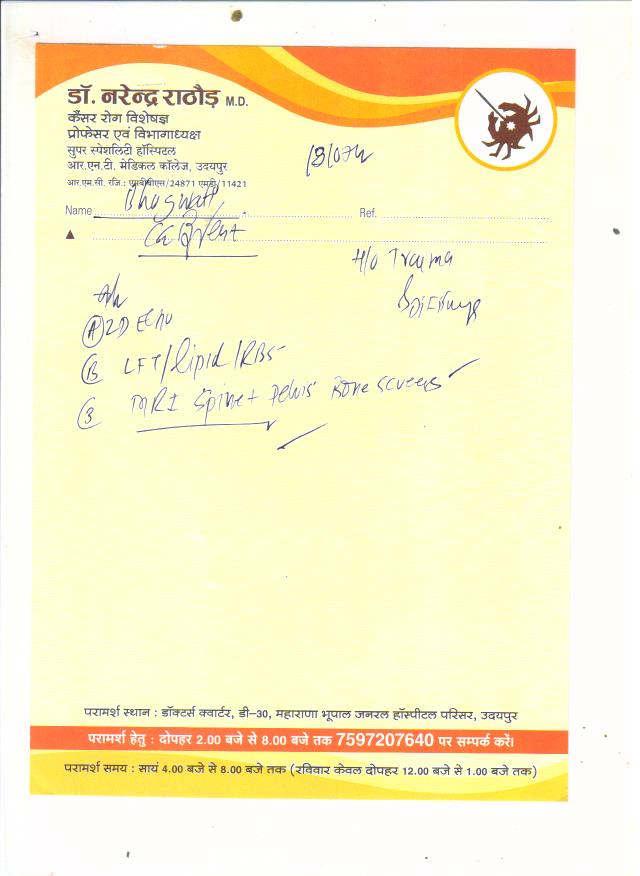 डॉ. नरेन्द्र राठौड़ M.D.
कैंसर रोग विशेषज्ञ
प्रोफेसर एवं विभागाध्यक्ष
सुपर स्पेशलिटी हॉस्पिटल
आर.एन.टी. मेडिकल कॉलेज, उदयपुर
आर.एम.सी. रजि.: एमबीबीएस/24871 एमडी/11421
Name Bhagwati Ref.
Ca Breast
H/o Trauma
Adv
(A) 2D Echo
(B LFT/lipid/RBS
(3 MRI Spine + Pelvis Bone screens
परामर्श स्थान : डॉक्टर्स क्वार्टर, डी–30, महाराणा भूपाल जनरल हॉस्पीटल परिसर, उदयपुर
परामर्श हेतु : दोपहर 2.00 बजे से 8.00 बजे तक 7597207640 पर सम्पर्क करें।
परामर्श समय : सायं 4.00 बजे से 8.00 बजे तक (रविवार केवल दोपहर 12.00 बजे से 1.00 बजे तक)